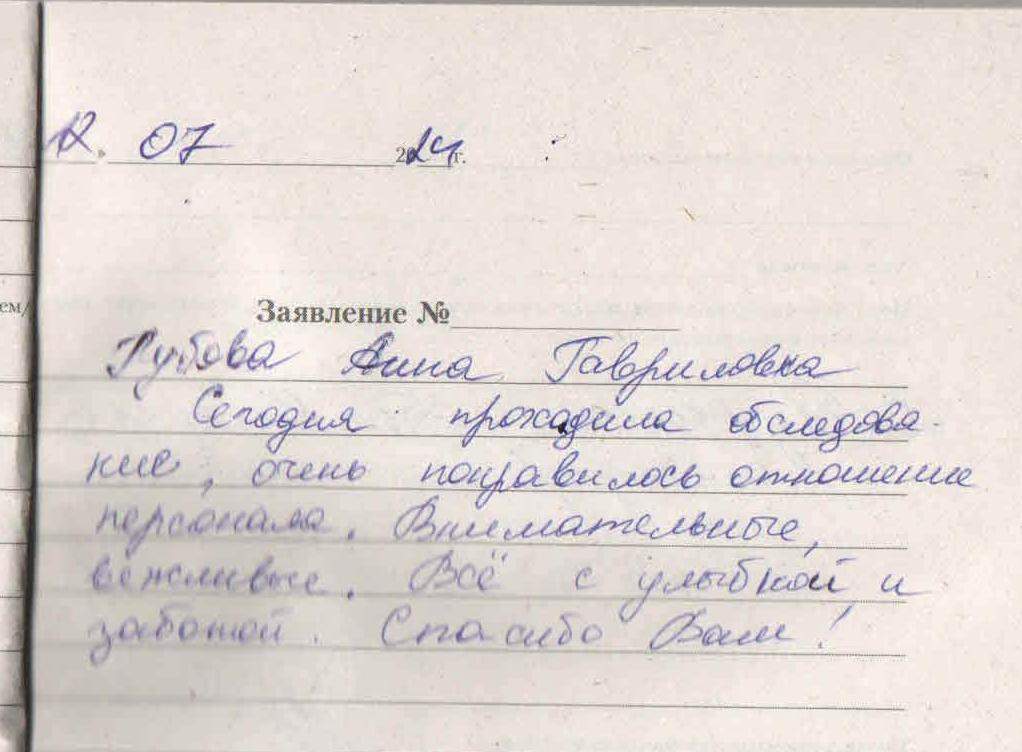 12. 07 2024 г.
ем/
Заявление №
Рубова Анна Гавриловна
Сегодня проходила обследова-
ние, очень понравилось отношение
персонала. Внимательные,
вежливые. Всё с улыбкой и
заботой. Спасибо Вам!